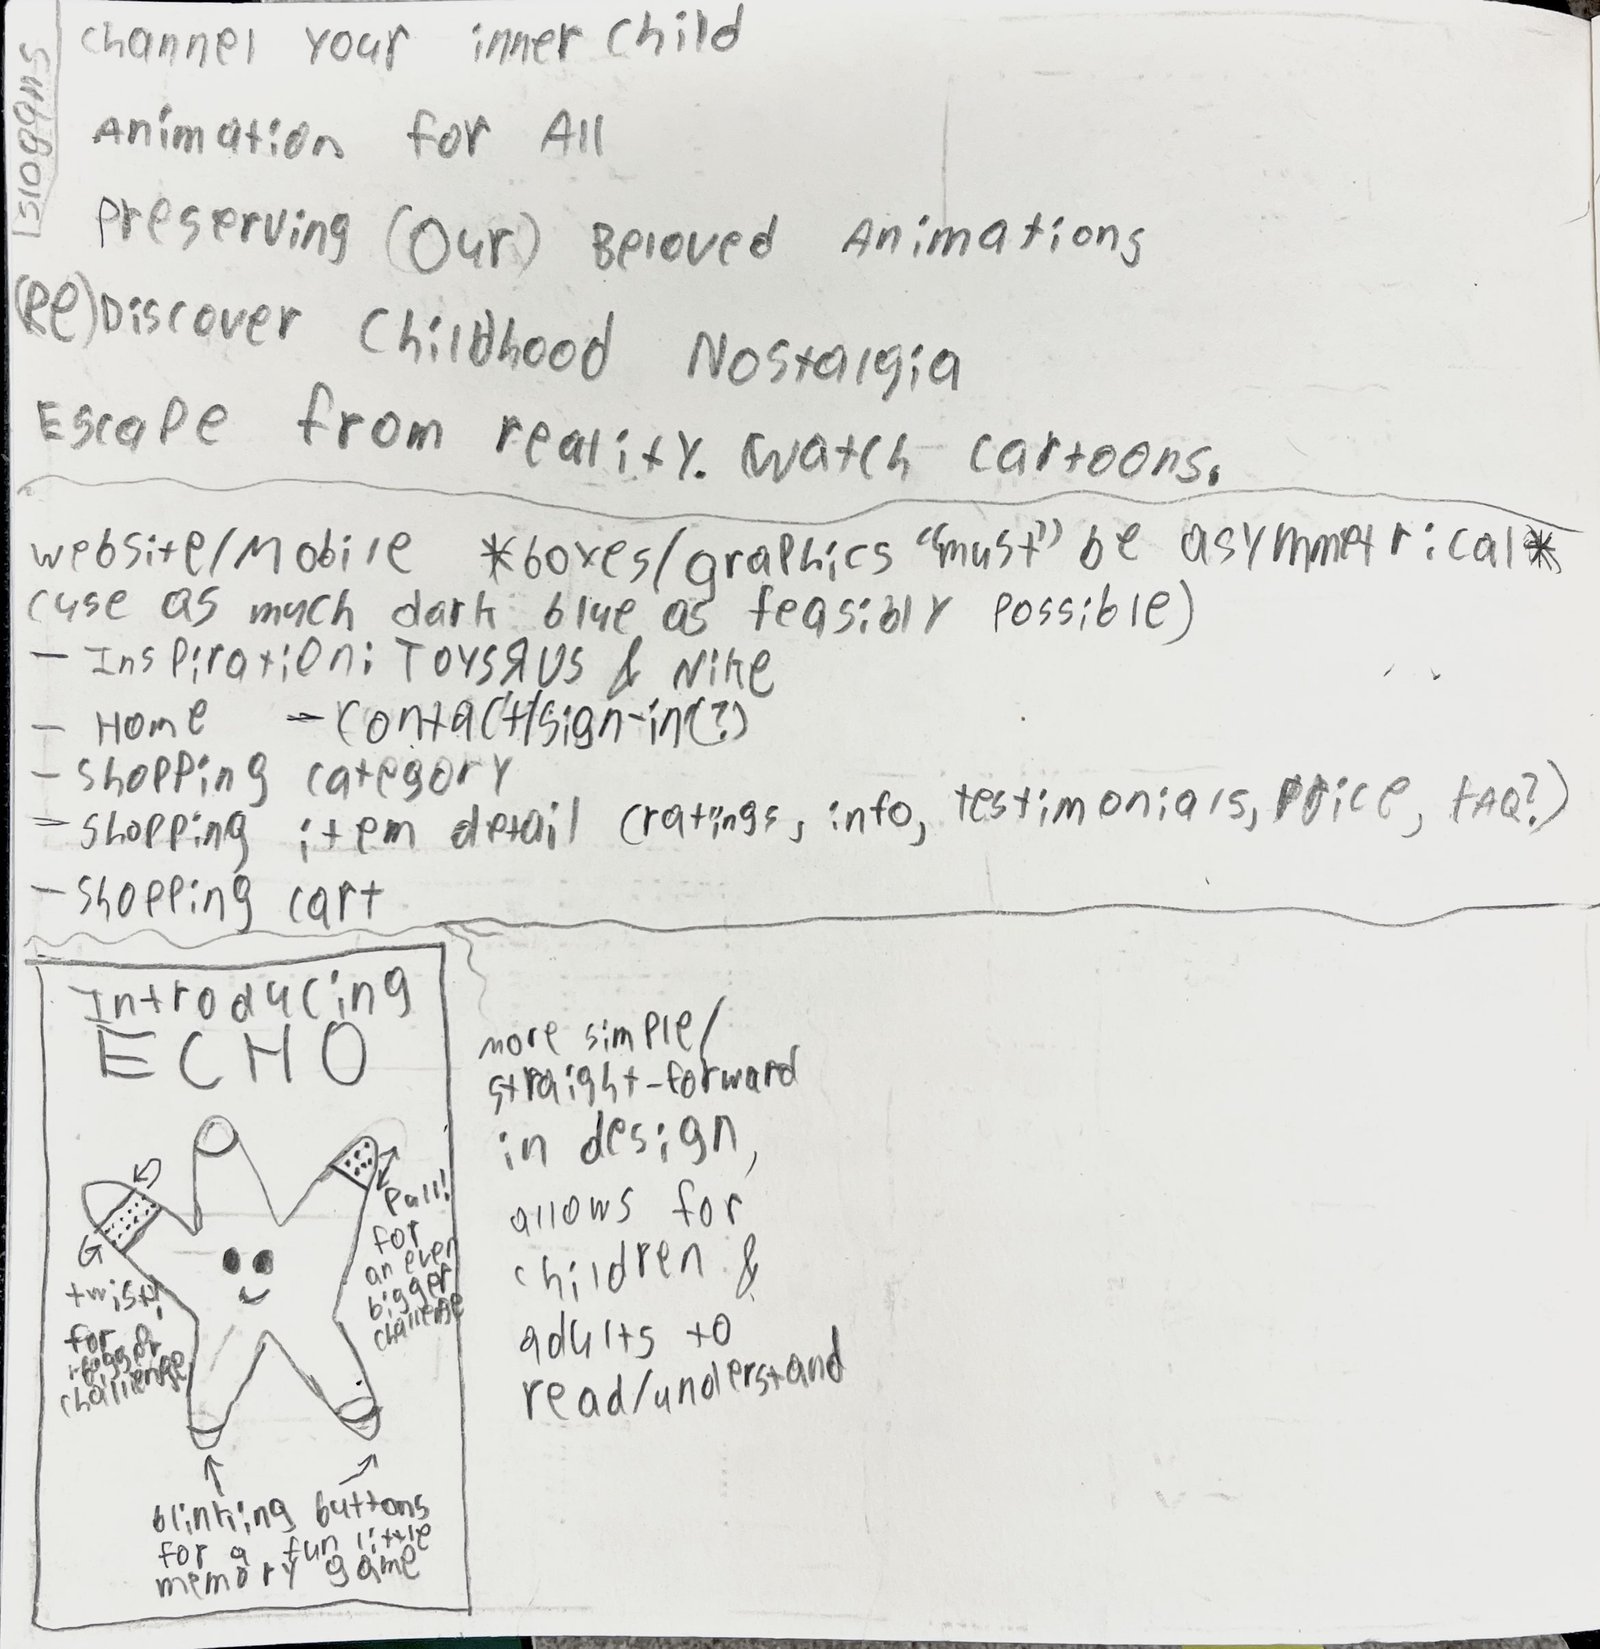 slogans
Channel Your inner Child
Animation for All
Preserving (Our) Beloved Animations
(Re)Discover Childhood Nostalgia
Escape from reality. Watch cartoons.
website/Mobile *boxes/graphics "must" be asymmetrical*
(use as much dark blue as feasibly possible)
- Inspiration: ToysЯUs & Nike
- Home - Contact/sign-in(?)
- Shopping category
- Shopping item detail (ratings, info, testimonials, Price, FAQ?)
- Shopping cart
Introducing
ECHO
twist!
for
bigger
challenge
Pull!
for
an even
bigger
challenge
blinking buttons
for a fun little
memory game
more simple/
straight-forward
in design,
allows for
children &
adults to
read/understand